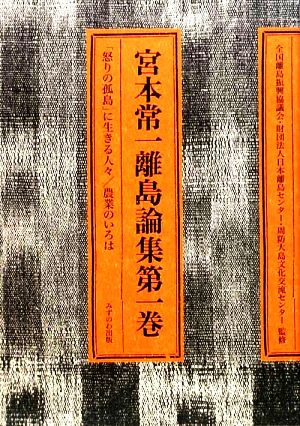 全国離島振興協議会・財団法人日本離島センター・周防大島文化交流センター 監修
宮本常一離島論集第一巻
「怒りの孤島」に生きる人々/農業のいろは
みずのわ出版